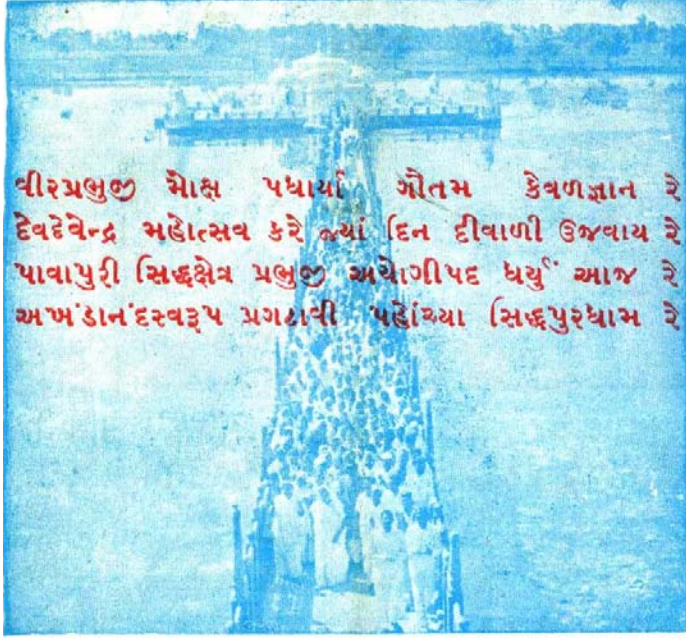 વીરપ્રભુજી મોક્ષ પધાર્યા ગૌતમ કેવળજ્ઞાન રે
દેવદેવેન્દ્ર મહોત્સવ કરે જ્યાં દિન દીવાળી ઉજવાય રે
પાવાપુરી સિદ્ધક્ષેત્ર પ્રભુજી અયોગીપદ ધર્યું આજ રે
અખંડાનંદસ્વરૂપ પ્રગટાવી પહોંચ્યા સિદ્ધપુરધામ રે